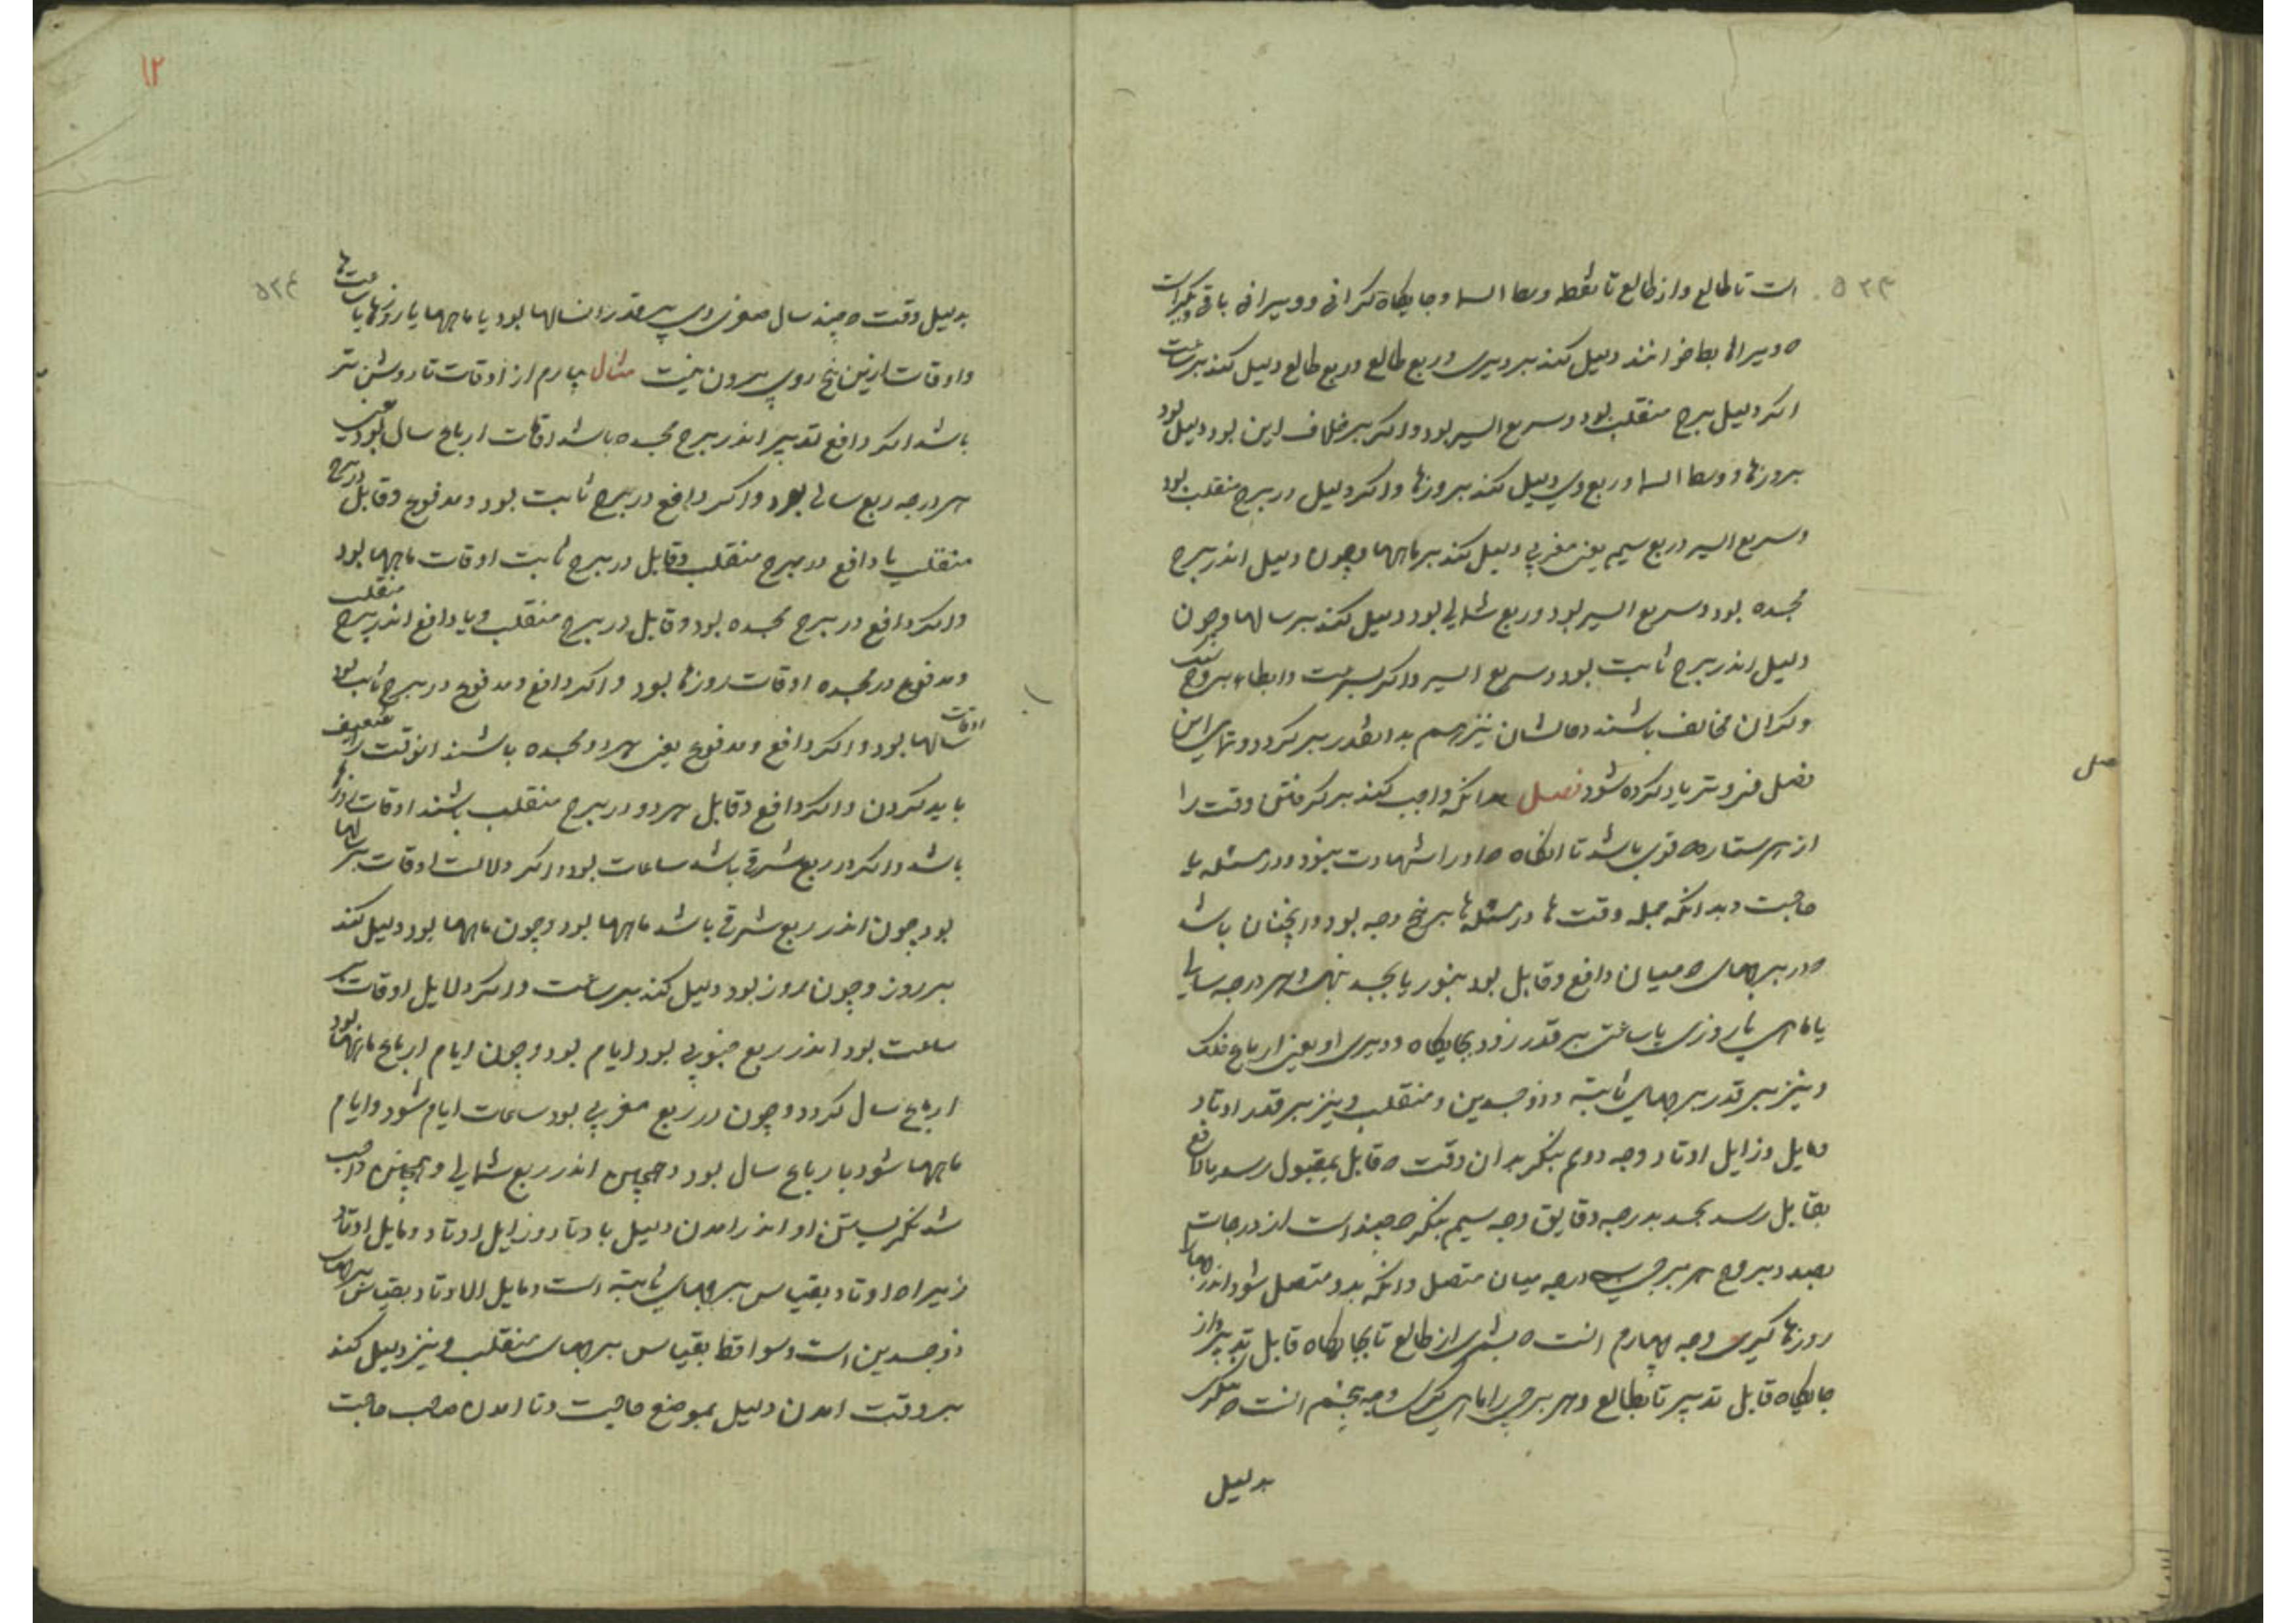 است تا طالع و از طالع تا نقطه وسط السما و جایگاه گرانی و دو سیرانی باقی دیگر است
که دسیرانها بطا خوانند دلیل کند بر دیری و ربع طالع وربع طالع دلیل کند بر ساعت
اکر دلیل ببرج منقلب بود و سریع السیر بود و اکر بر خلاف این بود دلیل بود
بروزها و وسط السما و ربع وی دلیل کند بروزها و اکر دلیل در برج منقلب بود
و سریع السیر و ربع سیم یعنی مغربی دلیل کند بر ماهها و چون دلیل اندر برج
مجسده بود و سریع السیر بود و ربع شمالی بود دلیل کند بر سالها و چون
دلیل اندر برج ثابت بود و سریع السیر و اکر بسرعت و ابطاء و بروج
و کران مخالف باشند دحالشان نیز هم بدانقدر بر کردد و تهای این
فصل فروتر یاد کرده شود فصل بدانکه واجب کند بر کرفتن وقت را
از هر ستاره که قوی باشد تا انکاه که او را شهادت بیفزود و در مسئله یا
حاجت و بدانکه جمله وقت ها در مسئله ها بر پنج وجه بود و اینچنان باشد
که در برجهای که میان دافع و قابل بود بنور یا بجسد بنهی و هر درجه سالی
یا ماهی یا روزی یا ساعتی بر قدر زود بجایگاه و دیری او یعنی ارباع فلک
و نیز بر قدر برجهای ثابته و ذوجسدین و منقلب و نیز بر قدر اوتاد
و مایل و زایل اوتاد وجه دوم بنکر بدان وقت که قابل بمقبول رسد یا دافع
بقابل رسد بجسد بدرجه و دقایق وجه سیم بنکر که چند است از درجات
بعد و بروج هر برجی درجه میان متصل و انکه بدو متصل شود اندر برجهای
روزها کیری وجه چهارم انست که بشمری از طالع تا بجایگاه قابل تدبیر و از
جایگاه قابل تدبیر تا بطالع و هر برجی را ماهی کوی وجه پنجم انست که بنکری
بدلیل
۵۲۳
۱۲
۵۲۴
بدلیل وقت که چند سال صغری وی بر قدر انسالها بود یا ماهها یا روزها یا ساعت ها
و اوقات ازین پنج روی بیرون نیست مثال بیارم از اوقات تا روشن تر
باشد اکر دافع تدبیر اندر برج مجسده باشد اوقات ارباع سال بود یعنی
هر درجه ربع سالی بود و اکر دافع در برج ثابت بود و مدفوع و قابل در برج
منقلب یا دافع در برج منقلب و قابل در برج ثابت اوقات ماهها بود
و اکر دافع در برج مجسده بود و قابل در برج منقلب و یا دافع اندر برج منقلب
و مدفوع در مجسده اوقات روزها بود و اکر دافع و مدفوع در برج ثابت بود
اوقات سالها بود و اکر دافع و مدفوع یعنی هر دو مجسده باشند انوقت را ضعیف
باید کردن و اکر دافع و قابل هر دو در برج منقلب باشند اوقات روزها
باشد و اکر در ربع شرقی باشد ساعات بود و اکر دلالت اوقات بر سالها
بود چون اندر ربع شرقی باشد ماهها بود و چون ماهها بود دلیل کند
بر روز و چون بروز بود دلیل کند بر ساعت و اکر دلایل اوقات بر
ساعت بود اندر ربع جنوبی بود ایام بود و چون ایام ارباع ماهها بود
ارباع سال کردد و چون در ربع مغربی بود ساعات ایام شود و ایام
ماهها شود یا ارباع سال بود و همچنین اندر ربع شمالی و همچنین واجب
شد نکریستن او اندر امدن دلیل باوتاد و زایل اوتاد و مایل اوتاد
زیرا که اوتاد بقیاس برجهای ثابته است و مایل الاوتاد بقیاس برجهای
ذوجسدین است و سواقط بقیاس برجهای منقلب و نیز دلیل کند
بر وقت امدن دلیل بموضع حاجت و تا امدن صاحب حاجت